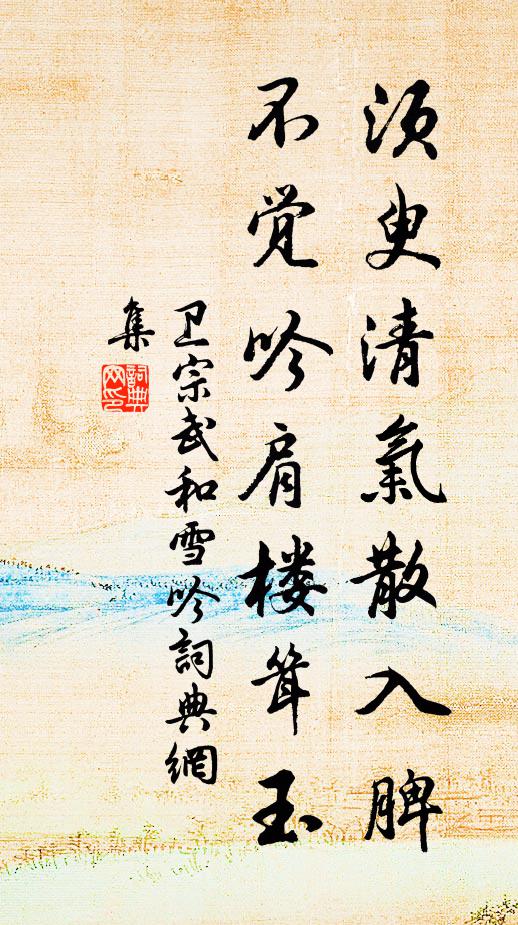 须臾清氣散入脾
不觉吟肩楼耸玉
卫宗武和雪吟詞典網
集
詞典
网印